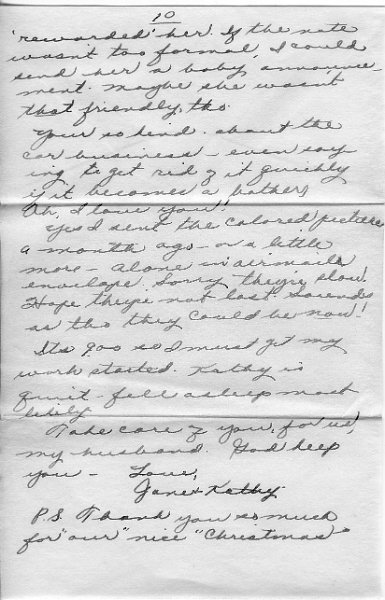 10
"rewarded" her. If the note
wasn't too formal, I could
send her a baby announce-
ment. Maybe she wasn't
that friendly, tho.
Your so kind about the
car business - even say-
ing to get rid of it quickly
if it becomes a bother,
Oh, I love you!
Yes I sent the colored pictures
a month ago - or a little
more - alone in airmail
envelope. Sorry they're slow.
Hope they're not lost. Sounds
as tho they could be now!
Its 900 so I must get my
work started. Kathy is
quiet - fell asleep most
likely.
Take care of you, for us,
my husband. God keep
you - Love,
Jane & Kathy.
P.S. Thank you so much
for "our" nice "Christmas"